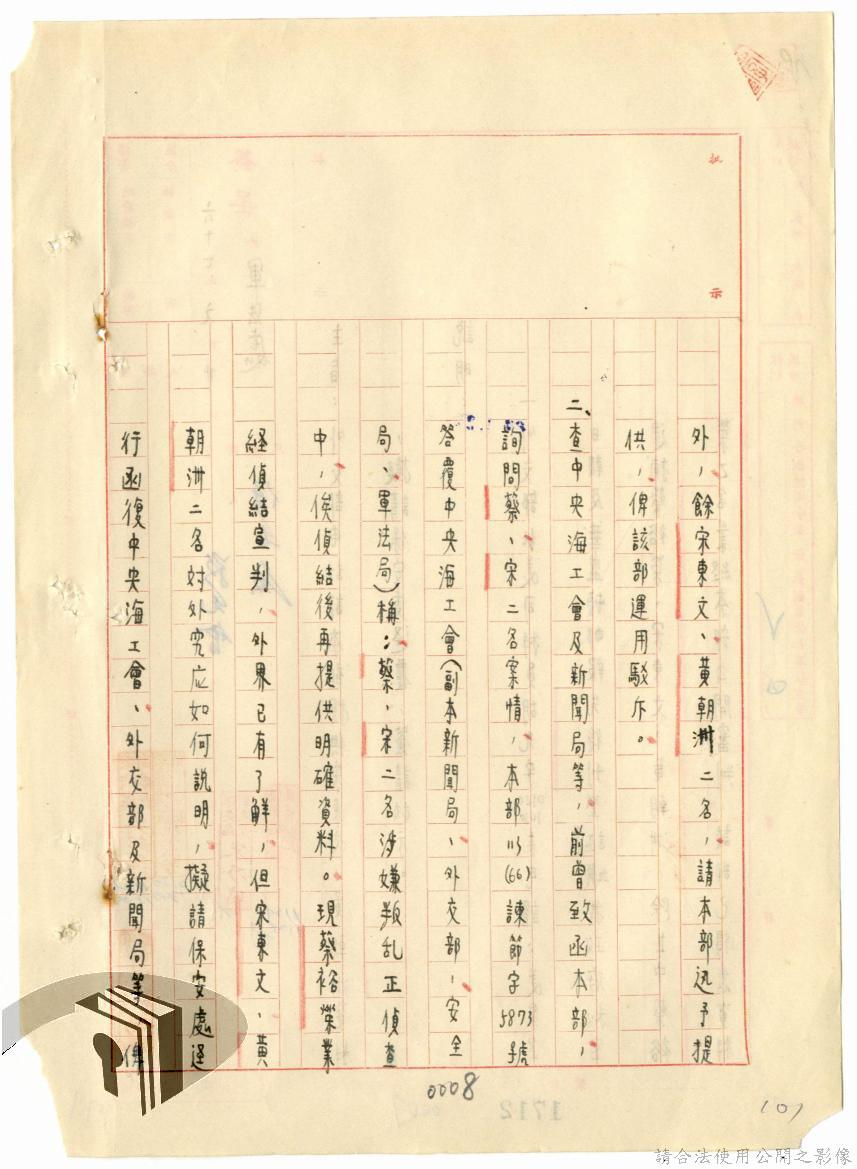 批示
外，餘宋東文、黃朝洲二名，請本部迅予提
供，俾該部運用駁斥。
二、查中央海工會及新聞局等，前曾致函本部，
詢問蔡、宋二名案情，本部以(66)諫節字5873號
答覆中央海工會(副本新聞局、外交部，安全
局、軍法局)稱：蔡、宋二名涉嫌叛乱正偵查
中，俟偵結後再提供明確資料。現蔡裕榮業
経偵結宣判，外界已有了解，但宋東文、黃
朝洲二名対外究应如何説明，擬請保安處逕
行函復中央海工會、外交部及新聞局等，俾
0008
1712
107
請合法使用公開之影像